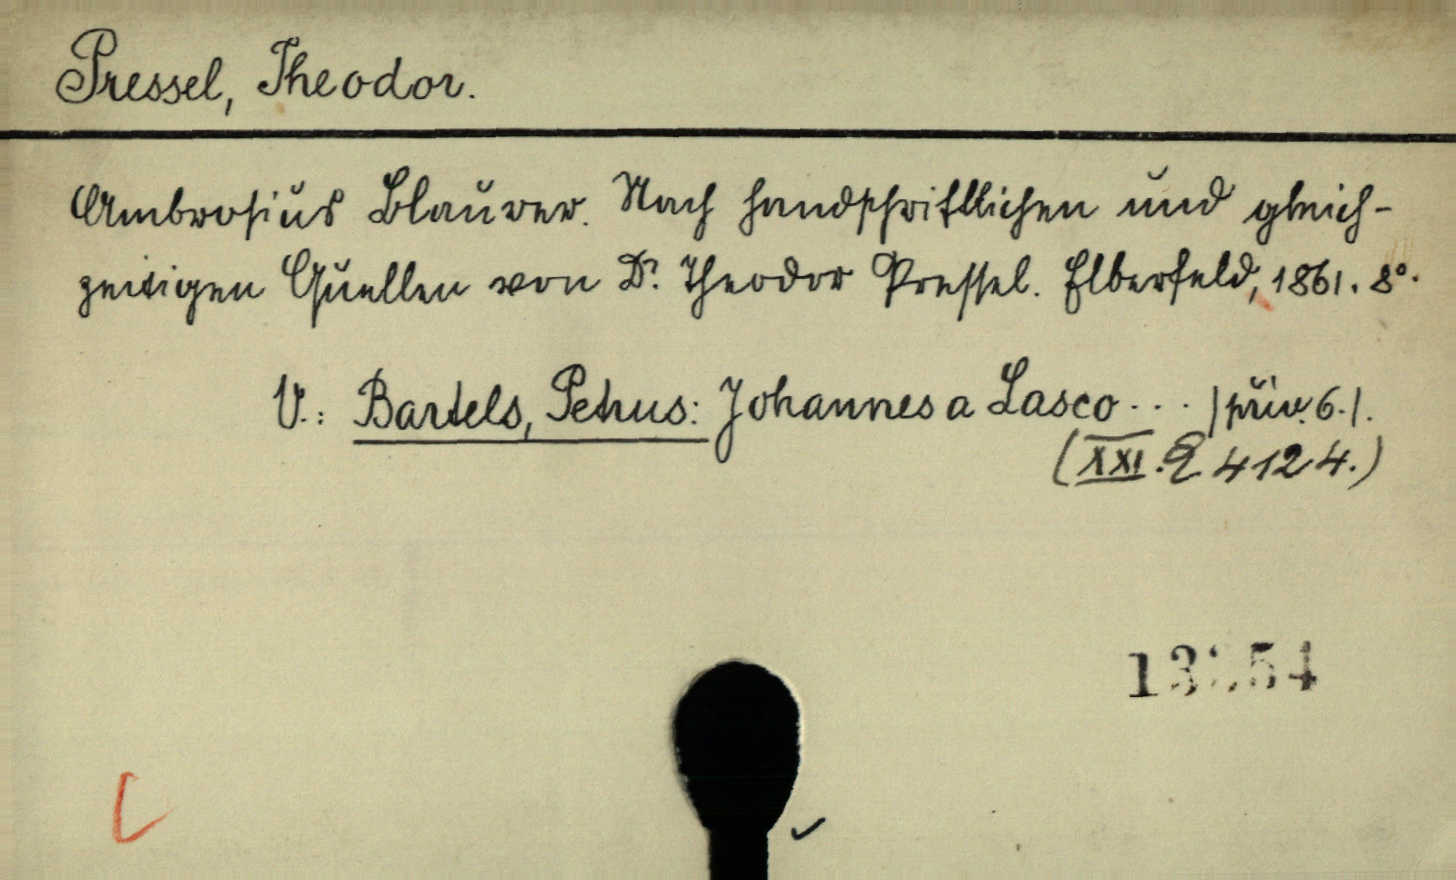 Pressel, Theodor.
Ambrosius Blaurer. Nach handschriftlichen und gleich-
zeitigen Quellen von Dr. Theodor Pressel. Elberfeld, 1861. 8°.
V.: Bartels, Petrus: Johannes a Lasco... 6.
(XXI. 4124.)